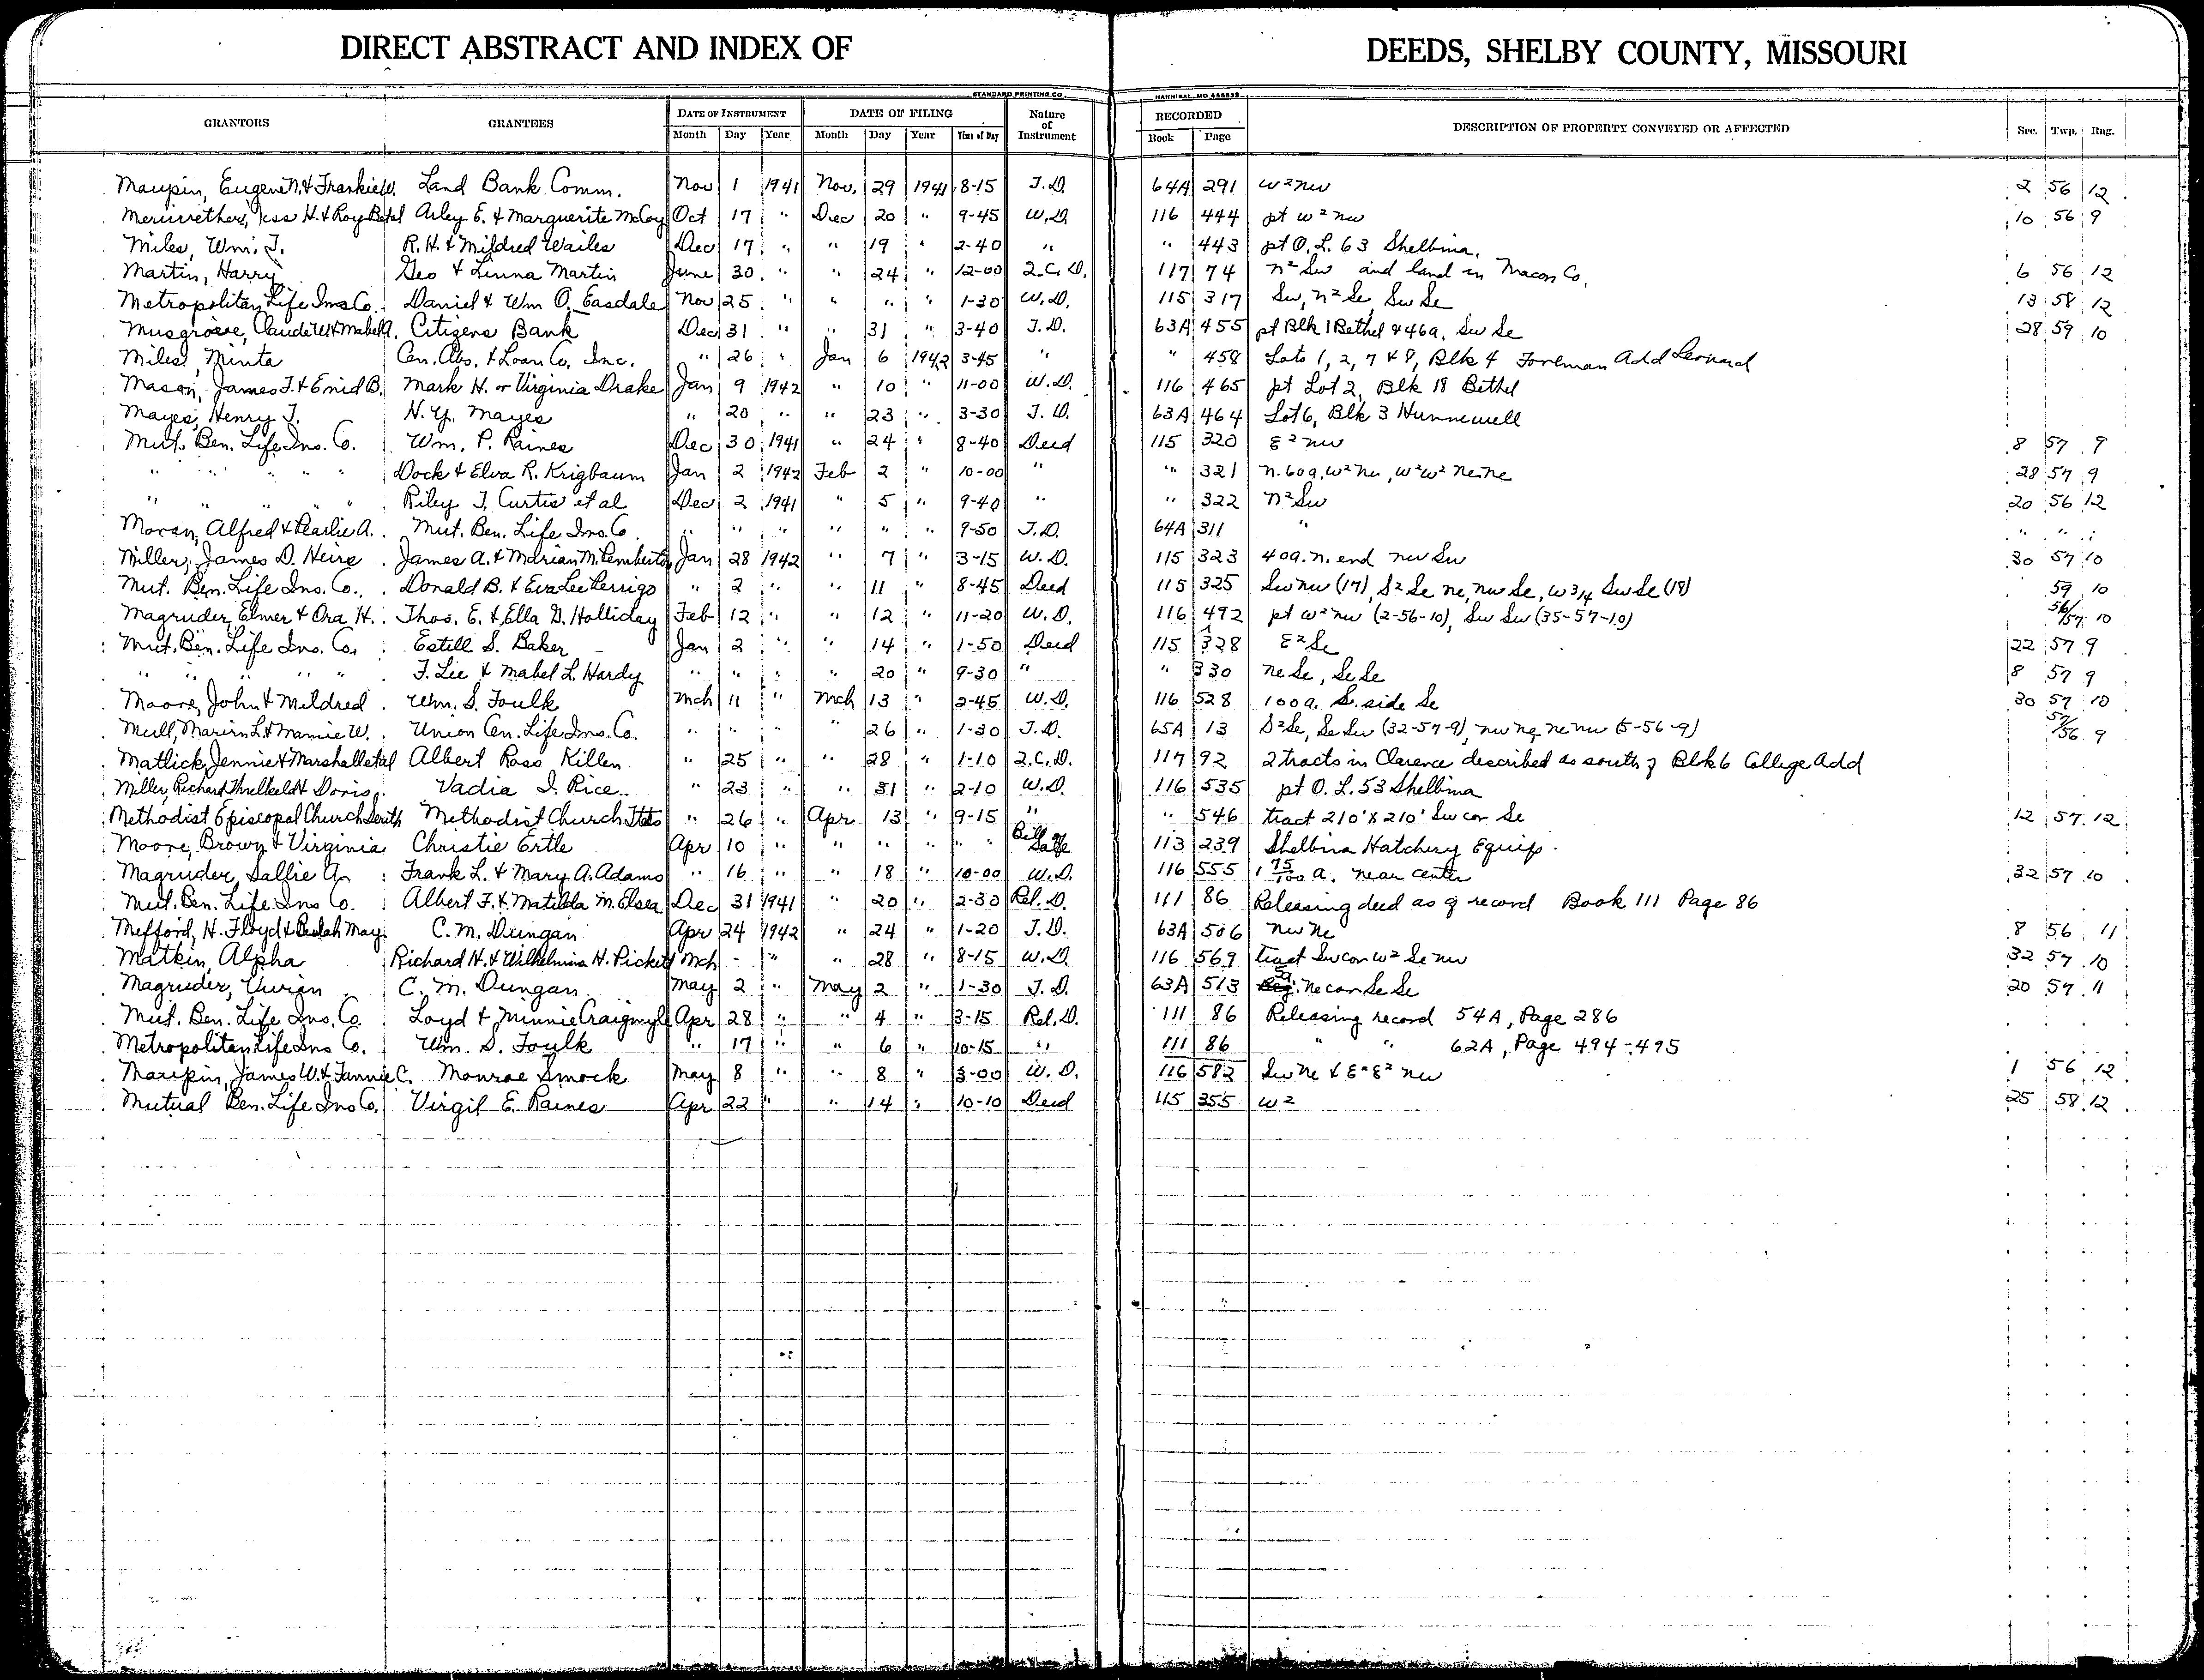 DIRECT ABSTRACT AND INDEX OF DEEDS, SHELBY COUNTY, MISSOURI
STANDARD PRINTING CO. HANNIBAL, MO.
GRANTORS GRANTEES DATE OF INSTRUMENT DATE OF FILING Nature of Instrument RECORDED DESCRIPTION OF PROPERTY CONVEYED OR AFFECTED Sec. Twp. Rng.
Month Day Year Month Day Year Time of Day Book Page
Maupin, Eugene N. & Frankie W. Land Bank Comm. Nov 1 1941 Nov. 29 1941 8-15 T.D. 64A 291 W²NW 2 56 12
Meriwether, Jess H. & Roy B etal Arley E. & Marguerite McCoy Oct 17 " Dec 20 " 9-45 W.D. 116 444 pt W²NW 10 56 9
Miles, Wm. T. R.H. & Mildred Wailes Dec 17 " " 19 " 2-40 " " 443 pt O.L. 63 Shelbina.
Martin, Harry Geo & Linna Martin June 30 " " 24 " 12-00 Q.C.D. 117 74 N²SW and land in Macon Co. 6 56 12
Metropolitan Life Ins Co. Daniel & Wm O. Easdale Nov 25 " " " " 1-30 W.D. 115 317 SW, N²SE, SW SE 13 58 12
Musgrove, Claude W. & Mabel A. Citizens Bank Dec 31 " " 31 " 3-40 T.D. 63A 455 pt Blk 1 Bethel & 46a. SW SE 28 59 10
Miles, Minta Cen. Abs. & Loan Co, Inc. " 26 " Jan 6 1942 3-45 " " 458 Lots 1, 2, 7 & 8, Blk 4 Foreman Add Leonard
Mason, James T. & Enid B. Mark H. or Virginia Drake Jan 9 1942 " 10 " 11-00 W.D. 116 465 pt Lot 2, Blk 18 Bethel
Mayes, Henry T. N.Y. Mayes " 20 " " 23 " 3-30 T.D. 63A 464 Lot 6, Blk 3 Hunnewell
Mut. Ben. Life Ins. Co. Wm. P. Raines Dec 30 1941 " 24 " 8-40 Deed 115 320 E²NW 8 57 9
" " " " Dock & Elva R. Krigbaum Jan 2 1942 Feb 2 " 10-00 " " 321 N. 60a, W²NE, W²W² NE NE 28 57 9
" " " " Riley T. Curtis et al Dec 2 1941 " 5 " 9-40 " " 322 N²SW 20 56 12
Moran, Alfred & Pearlie A. Mut. Ben. Life Ins. Co " " " " " " 9-50 T.D. 64A 311 " " " "
Miller, James D. Heirs James A. & Marian M. Pemberton Jan 28 1942 " 7 " 3-15 W.D. 115 323 40a. N. end NW SW 30 57 10
Mut. Ben. Life Ins. Co., Donald B. & Eva Lee Perrigo " 2 " " 11 " 8-45 Deed 115 325 SW NW (17), S²SE NE, NW SE, W 3/4 SW SE (18) 59 10
Magruder, Elmer & Ora H. Thos. E. & Ella D. Holliday Feb 12 " " 12 " 11-20 W.D. 116 492 pt W²NW (2-56-10), SW SW (35-57-10) 56/57 10
Mut. Ben. Life Ins. Co. Estill S. Baker Jan 2 " " 14 " 1-50 Deed 115 328 E²SE 22 57 9
" " " " F. Lee & Mabel L. Hardy " " " " 20 " 9-30 " " 330 NE SE, SE SE 8 57 9
Moore, John & Mildred Wm. S. Foulk Mch 11 " Mch 13 " 2-45 W.D. 116 528 100a. S. side SE 30 57 10
Mull, Marvin L. & Mamie W. Union Cen. Life Ins. Co. " " " " 26 " 1-30 T.D. 65A 13 S²SE, SE SW (32-57-9), NW NE, NE NW (5-56-9) 57/56 9
Matlick, Jennie & Marshall etal Albert Ross Killen " 25 " " 28 " 1-10 Q.C.D. 117 92 2 tracts in Clarence described as south of Blk 6 College Add
Miller, Richard Threlkeld & Doris J. Vadia I. Rice " 23 " " 31 " 2-10 W.D. 116 535 pt O.L. 53 Shelbina
Methodist Episcopal Church South Methodist Church Ttes " 26 " Apr 13 " 9-15 " " 546 tract 210'X210' SW cor SE 12 57 12
Moore, Brown & Virginia Christie Ertle Apr 10 " " " " " Bill of Sale 113 239 Shelbina Hatchery Equip.
Magruder, Sallie A. Frank L. & Mary A. Adams " 16 " " 18 " 10-00 W.D. 116 555 1 75/100 a. near center 32 57 10
Mut. Ben. Life Ins Co. Albert F. & Matilda M. Elsea Dec 31 1941 " 20 " 2-30 Rel. D. 111 86 Releasing deed as of record Book 111 Page 86
Mefford, H. Floyd & Beulah May C.M. Dungan Apr 24 1942 " 24 " 1-20 T.D. 63A 506 NW NE 8 56 11
Matkin, Alpha Richard H. & Wilhelmina H. Pickett Mch - " " 28 " 8-15 W.D. 116 569 tract SW cor W² SE NW 32 57 10
Magruder, Vivian C.M. Dungan May 2 " May 2 " 1-30 T.D. 63A 513 5a NE cor SE SE 20 57 11
Mut. Ben. Life Ins. Co. Loyd & Minnie Craigmyle Apr 28 " " 4 " 3-15 Rel. D. 111 86 Releasing record 54A, Page 286
Metropolitan Life Ins Co. Wm. S. Foulk " 17 " " 6 " 10-15 " 111 86 " " 62A, Page 494-495
Maupin, James W. & Fannie C. Monroe Smock May 8 " " 8 " 3-00 W.D. 116 582 SW NE & E²E² NW 1 56 12
Mutual Ben. Life Ins Co. Virgil E. Raines Apr 22 " " 14 " 10-10 Deed 115 355 W² 25 58 12